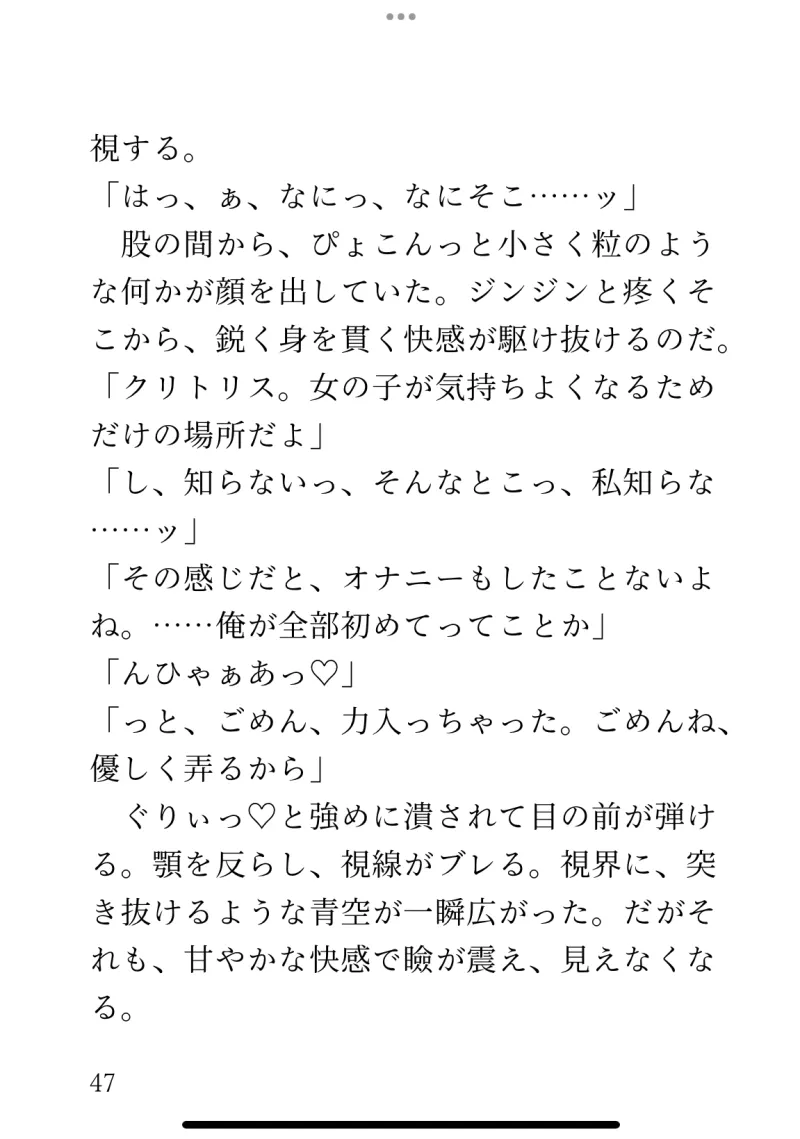 視する。
「はっ、ぁ、なにっ、なにそこ……ッ」
　股の間から、ぴょこんっと小さく粒のよう
な何かが顔を出していた。ジンジンと疼くそ
こから、鋭く身を貫く快感が駆け抜けるのだ。
「クリトリス。女の子が気持ちよくなるため
だけの場所だよ」
「し、知らないっ、そんなとこっ、私知らな
……ッ」
「その感じだと、オナニーもしたことないよ
ね。……俺が全部初めてってことか」
「んひゃぁあっ♡」
「っと、ごめん、力入っちゃった。ごめんね、
優しく弄るから」
　ぐりぃっ♡と強めに潰されて目の前が弾け
る。顎を反らし、視線がブレる。視界に、突
き抜けるような青空が一瞬広がった。だがそ
れも、甘やかな快感で瞼が震え、見えなくな
る。
47